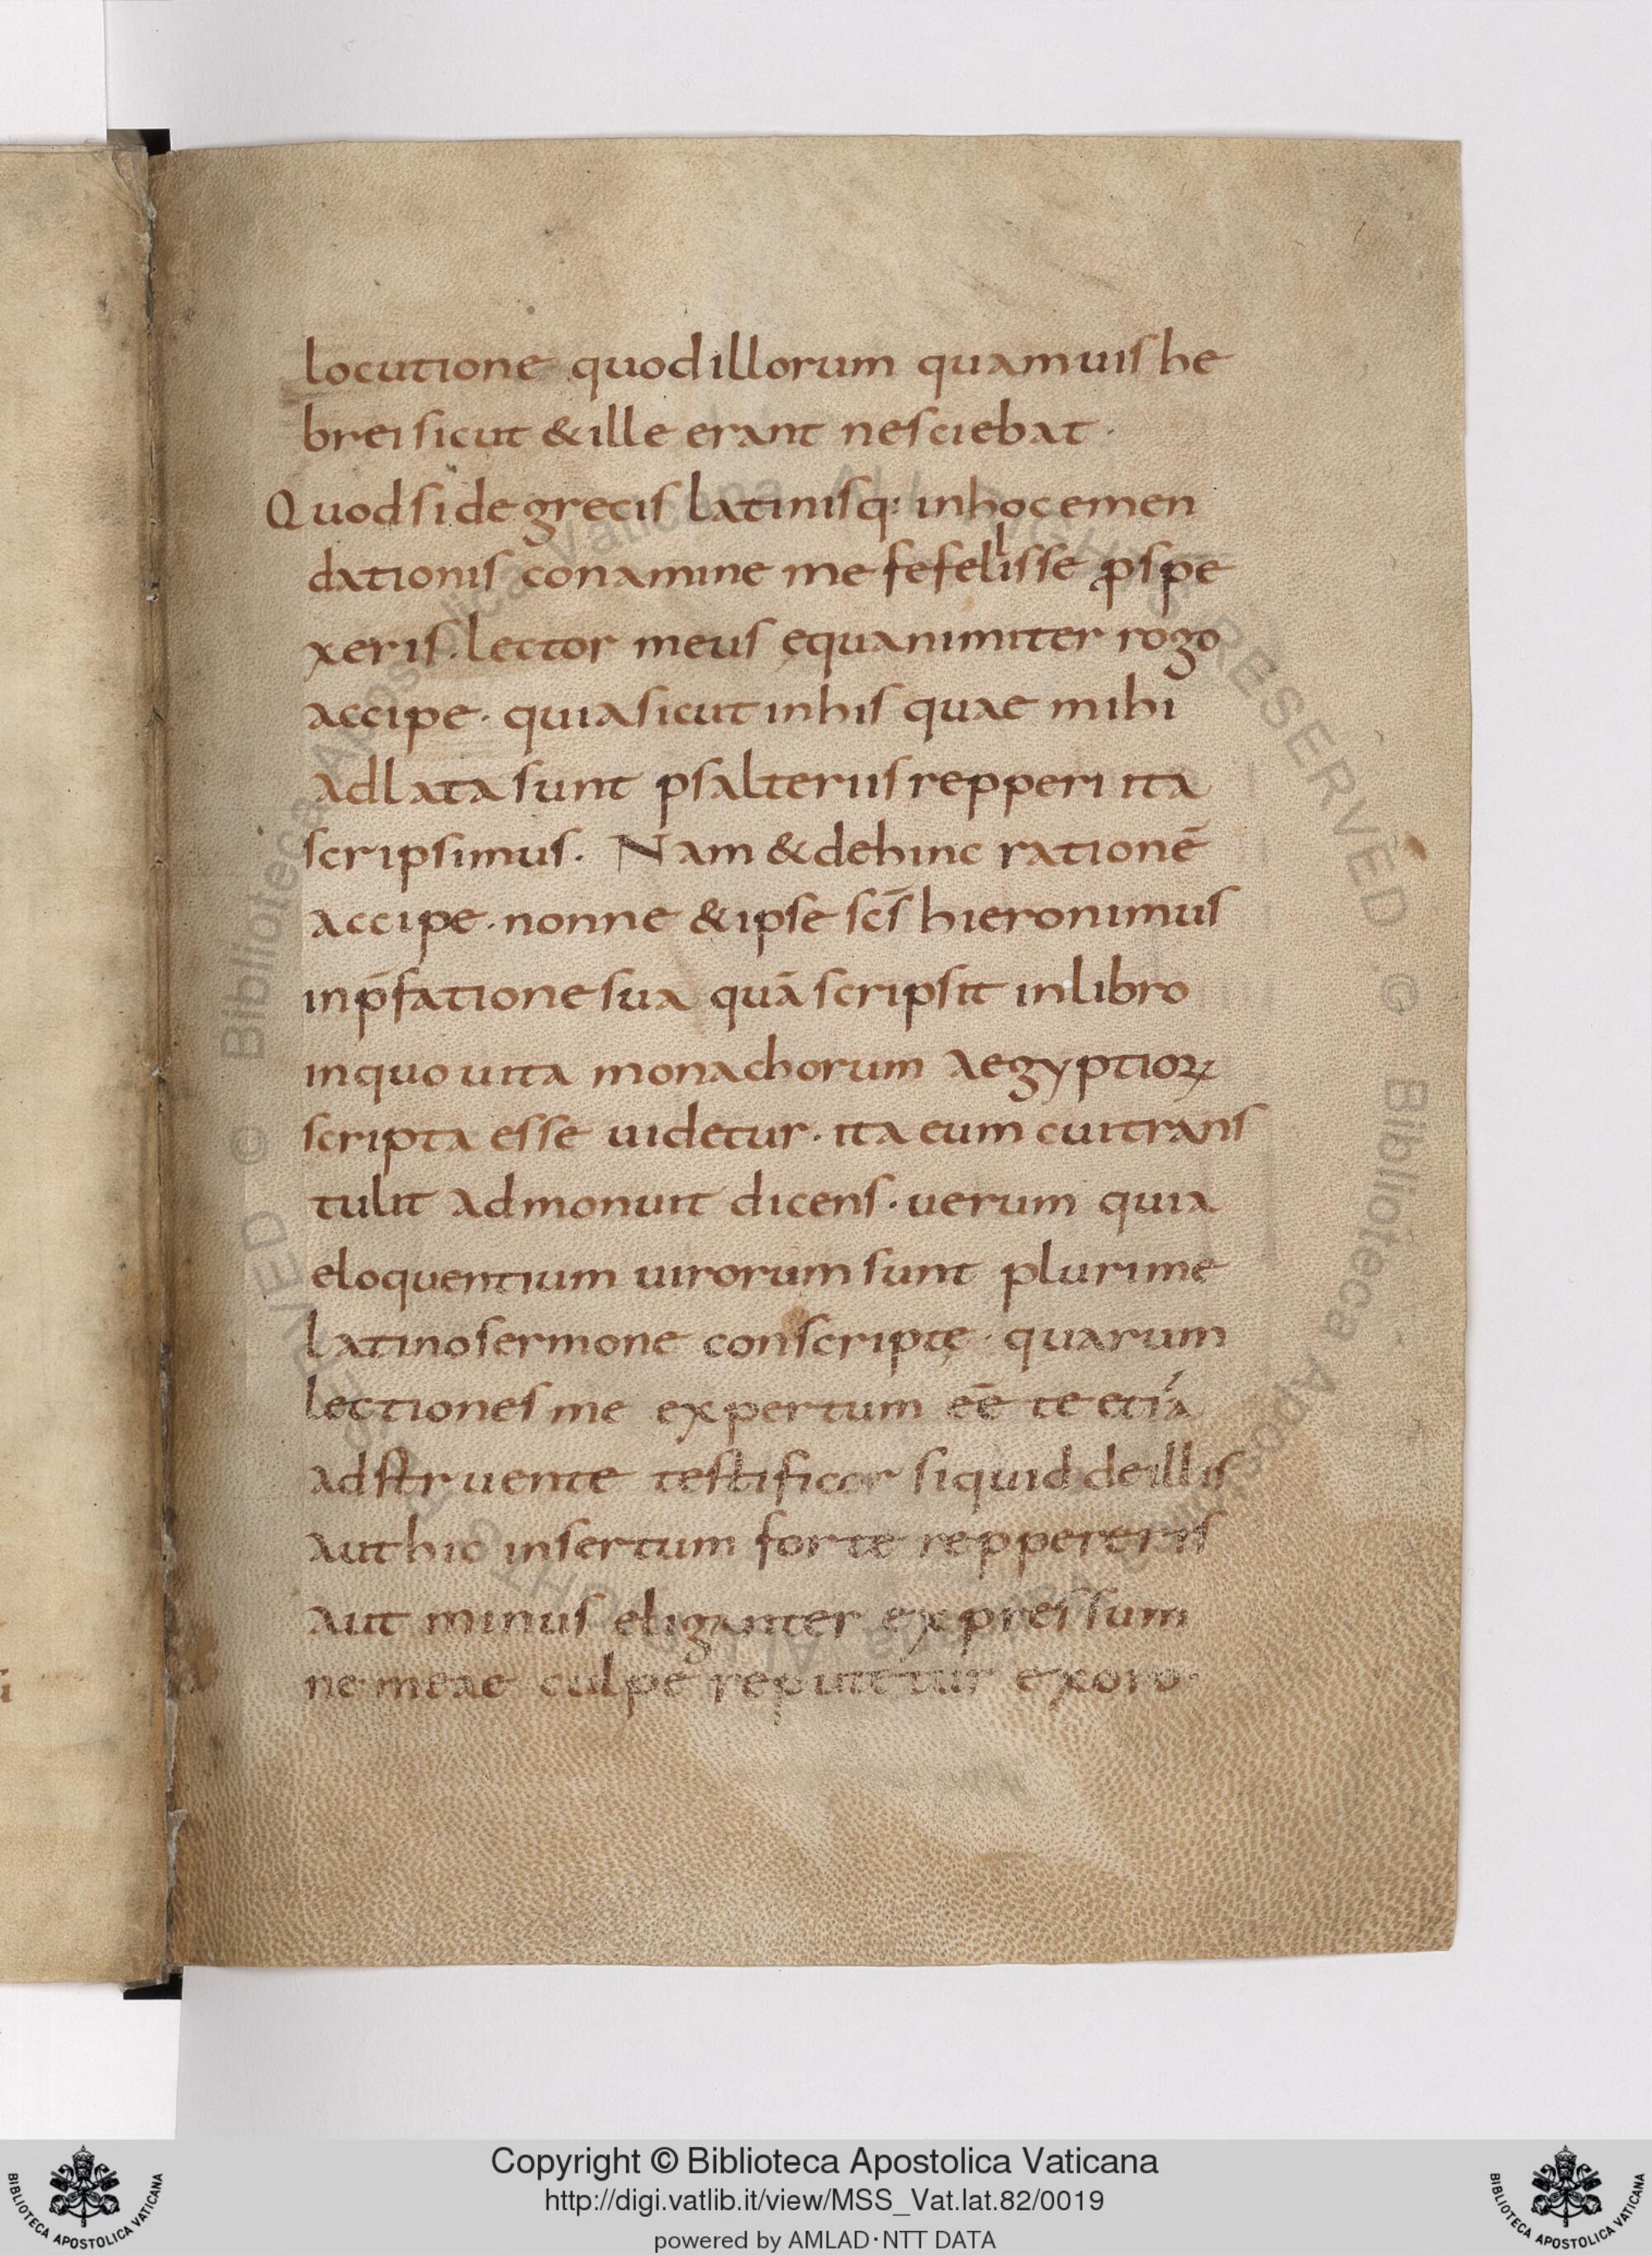 locutione quod illorum quamuis he
brei sicut & ille erant nesciebat ·
Quod si de grecis latinisq: in hoc emen
dationis conamine me fefellisse ꝓspe
xeris · lector meus ęquanimiter rogo
accipe · quia sicut in his quae mihi
adlata sunt psalteriis repperi ita
scripsimus. Nam & dehinc rationē
accipe · nonne & ipse scs̄ hieronimus
in p̄fatione sua quā scripsit in libro
in quo uita monachorum aegyptioꝝ
scripta esse uidetur · ita eum cui trans
tulit admonuit dicens · uerum quia
eloquentium uirorum sunt plurime
latino sermone conscriptę · quarum
lectiones me expertum eē te etiā
adstruente testificor si quid de illis
aut hic insertum forte reppereris
aut minus eliganter expressum
ne meae culpe reputetur exoro ·
Copyright © Biblioteca Apostolica Vaticana
http://digi.vatlib.it/view/MSS_Vat.lat.82/0019
powered by AMLAD·NTT DATA
BIBLIOTECA APOSTOLICA VATICANA
BIBLIOTECA APOSTOLICA VATICANA